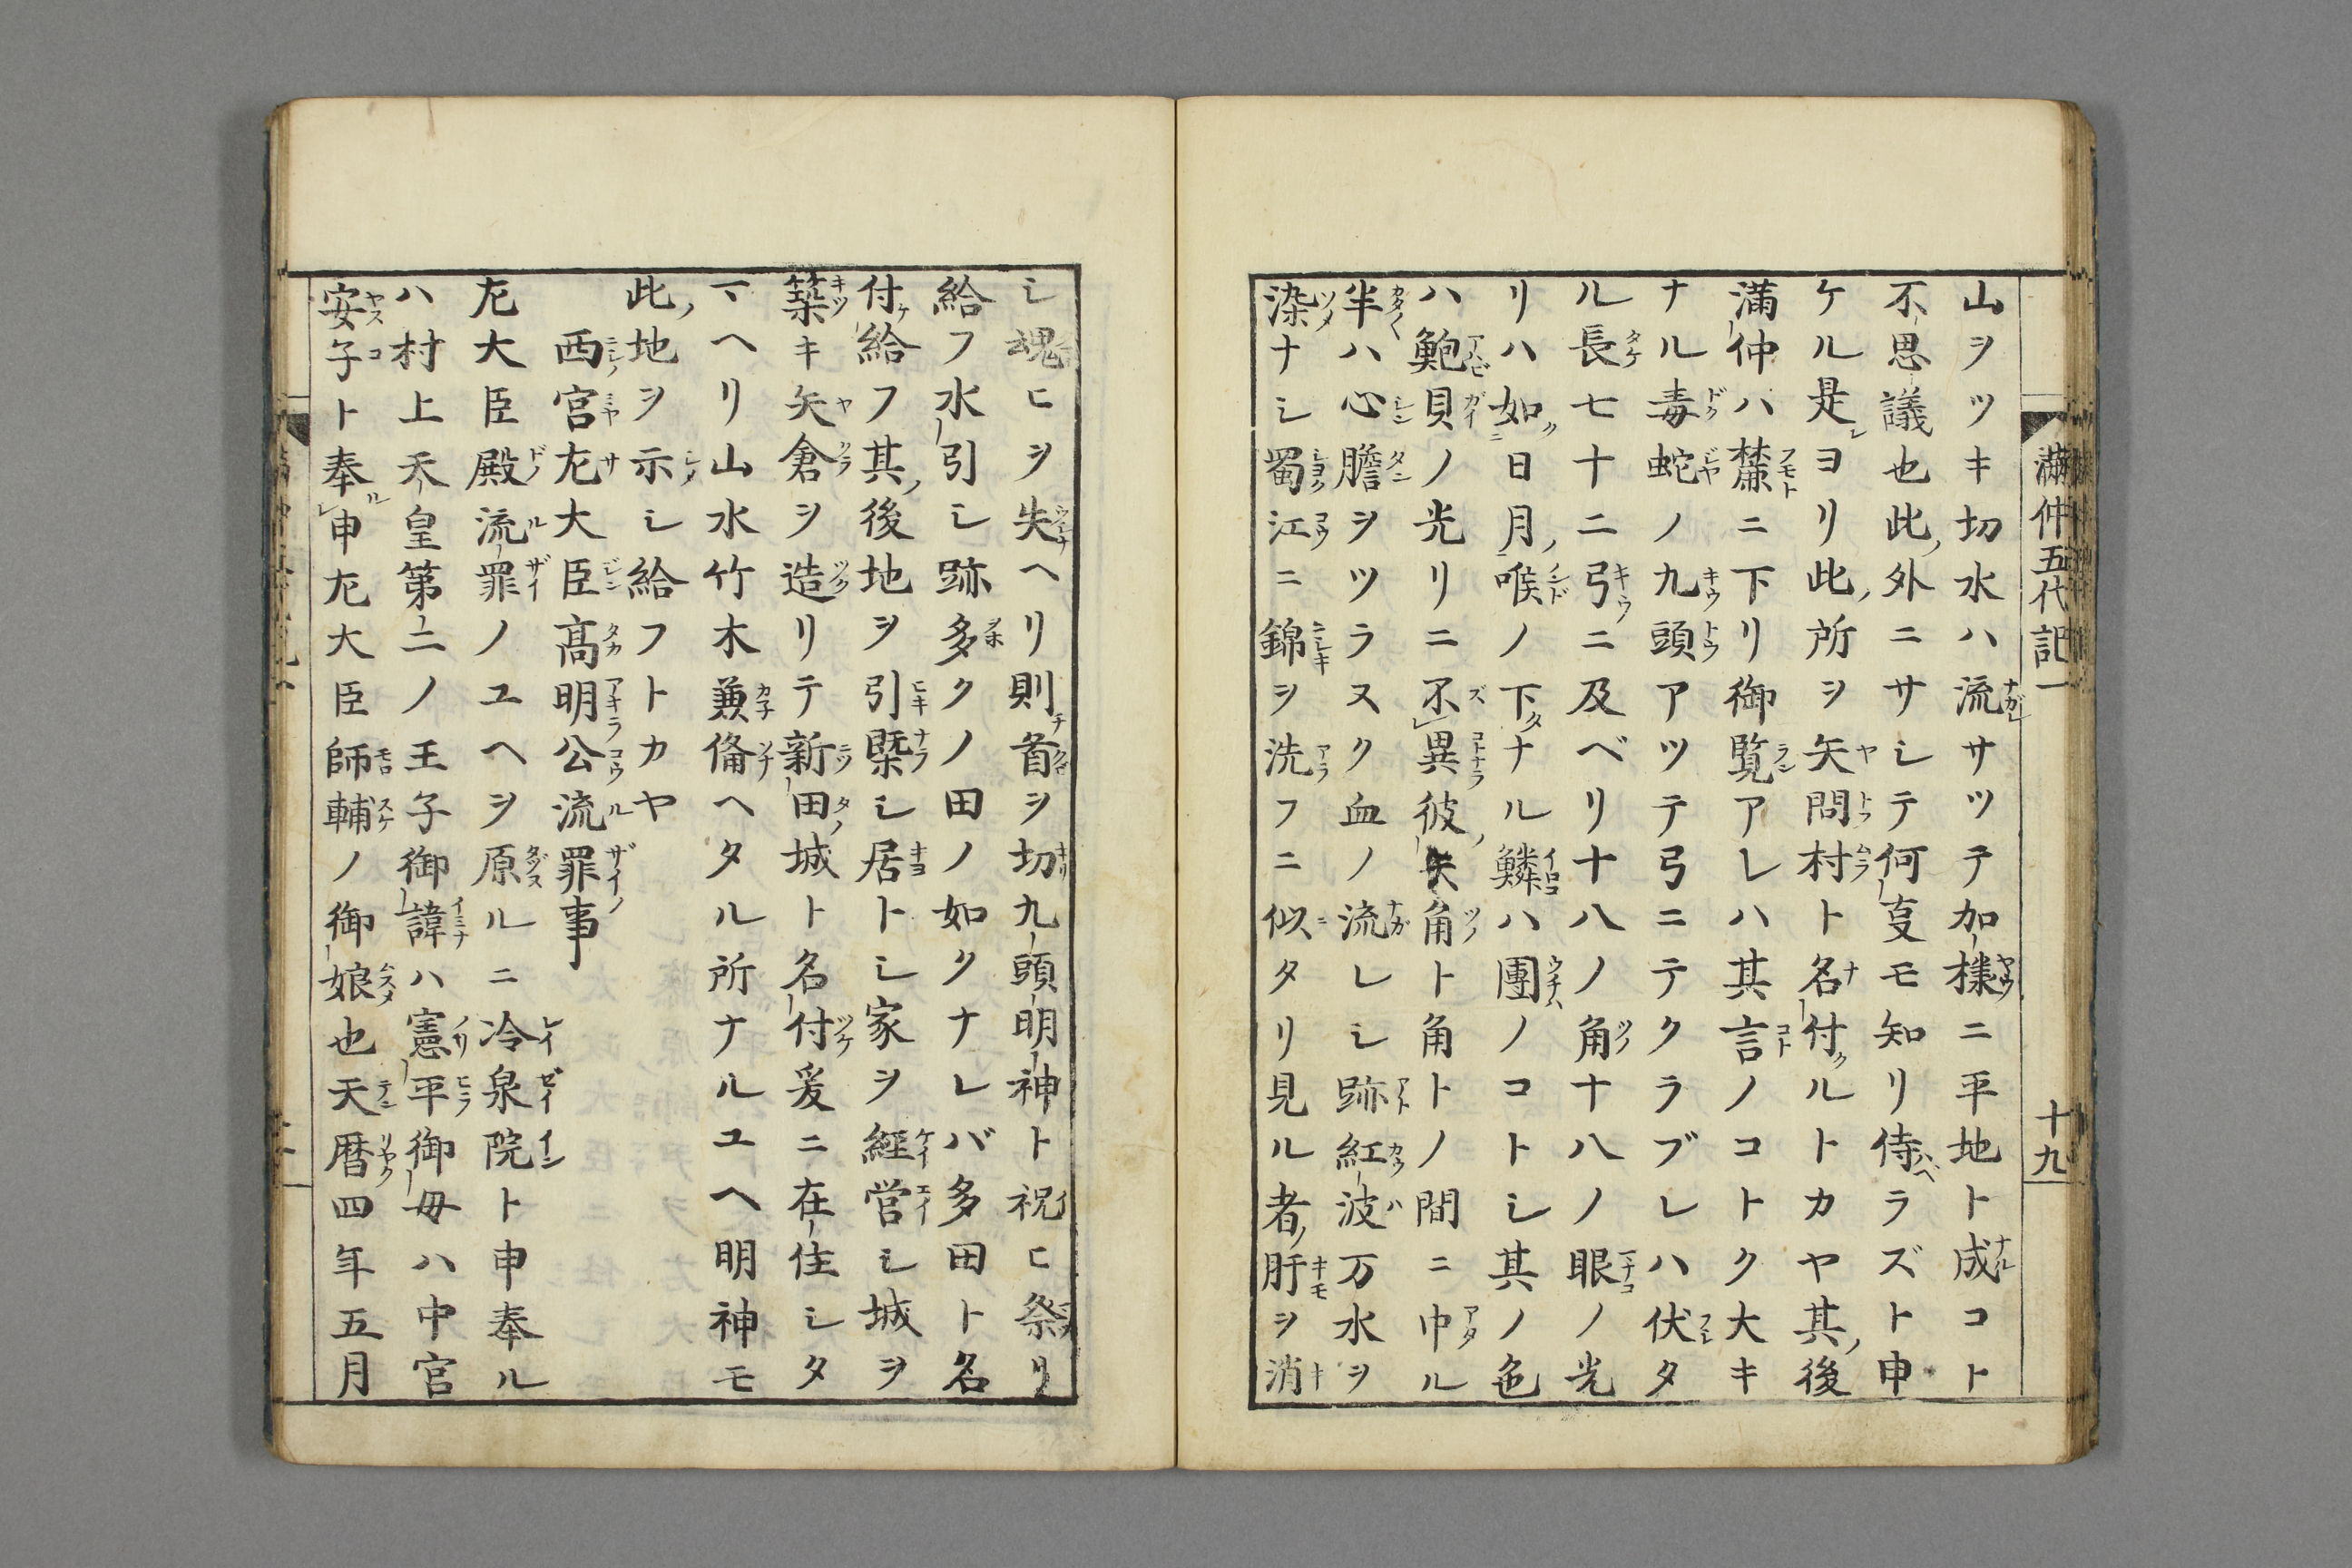 満仲五代記一
十九
山ヲツキ切水ハ流サツテ加様ニ平地ト成コト
不思議也此外ニサシテ何事モ知リ侍ラズト申
ケル是ヨリ此所ヲ矢問村ト名付クルトカヤ其後
満仲ハ麓ニ下リ御覧アレハ其言ノコトク大キ
ナル毒蛇ノ九頭アツテ弓ニテクラブレハ伏タ
ル長七十二弓ニ及ベリ十八ノ角十八ノ眼ノ光
リハ如日月喉ノ下タナル鱗ハ團ノコトシ其ノ色
ハ鮑貝ノ光リニ不異彼矢角ト角トノ間ニ中ル
半ハ心膽ヲツラヌク血ノ流レシ跡紅波万水ヲ
染ナシ蜀江ニ錦ヲ洗フニ似タリ見ル者肝ヲ消
シ魂ヒヲ失ヘリ則首ヲ切九頭明神ト祝ヒ祭リ
給フ水引シ跡多クノ田ノ如クナレバ多田ト名
付給フ其後地ヲ引槩シ居トシ家ヲ経営シ城ヲ
築キ矢倉ヲ造リテ新田城ト名付爰ニ在住シタ
マヘリ山水竹木兼俻ヘタル所ナルユヘ明神モ
此地ヲ示シ給フトカヤ
西宮左大臣髙明公流罪事
左大臣殿流罪ノユヘヲ原ルニ冷泉院ト申奉ル
ハ村上天皇第二ノ王子御諱ハ憲平御母ハ中宮
安子ト奉申左大臣師輔ノ御娘也天暦四年五月